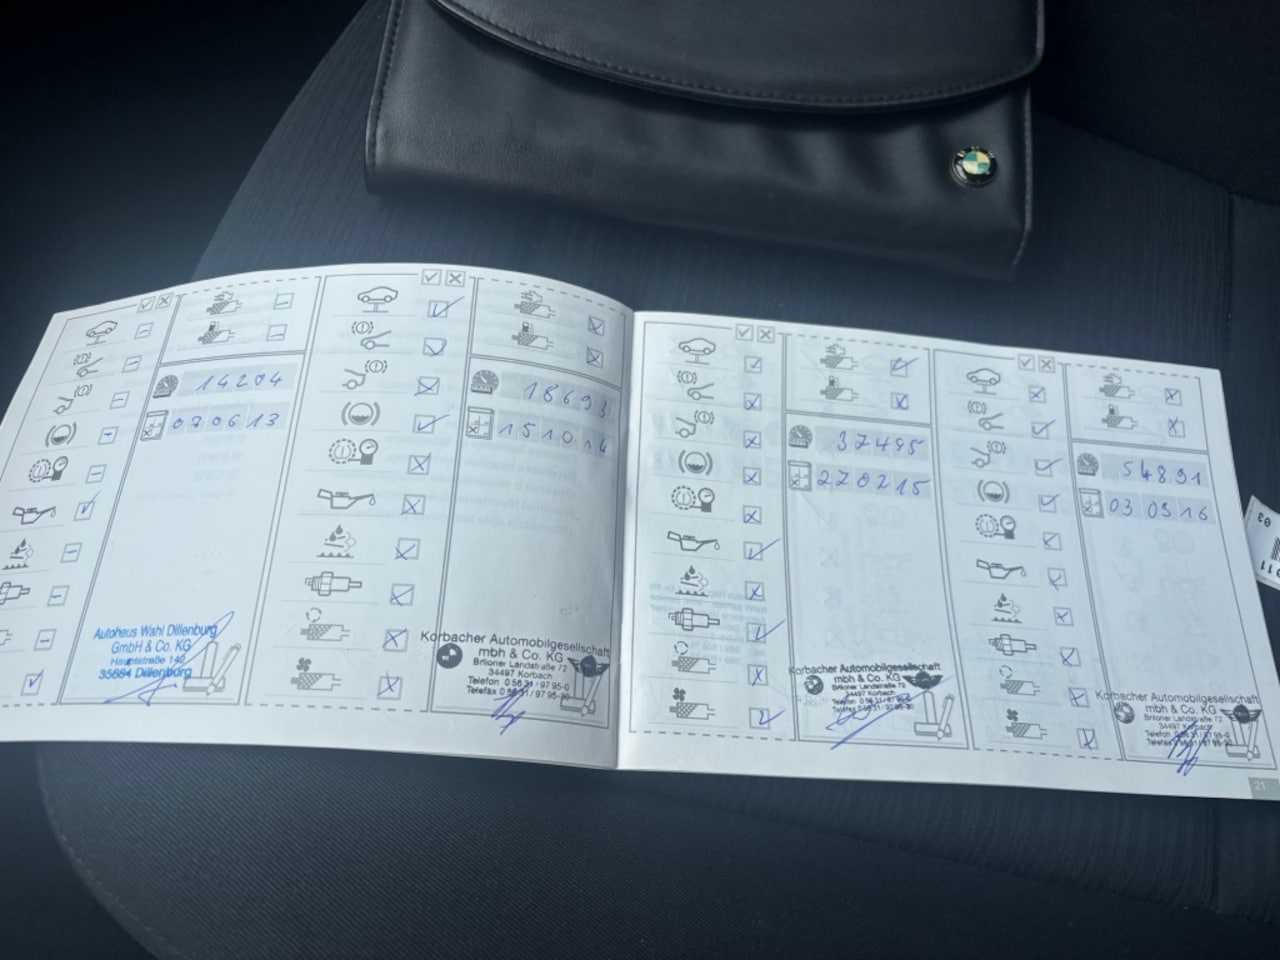 14204
070613
Autohaus Wahl Dillenburg
GmbH & Co. KG
Hauptstraße 142
35684 Dillenburg
18693
151014
Korbacher Automobilgesellschaft
mbh & Co. KG
Briloner Landstraße 72
34497 Korbach
Telefon 0 56 31 / 97 95-0
Telefax 0 56 31 / 97 95-30
37495
270215
Korbacher Automobilgesellschaft
mbh & Co. KG
Briloner Landstraße 72
34497 Korbach
Telefon 0 56 31 / 97 95-0
Telefax 0 56 31 / 97 95-30
54891
03 0916
Korbacher Automobilgesellschaft
mbh & Co. KG
Briloner Landstraße 72
34497 Korbach
Telefon 0 56 31 / 97 95-0
Telefax 0 56 31 / 97 95-30
21